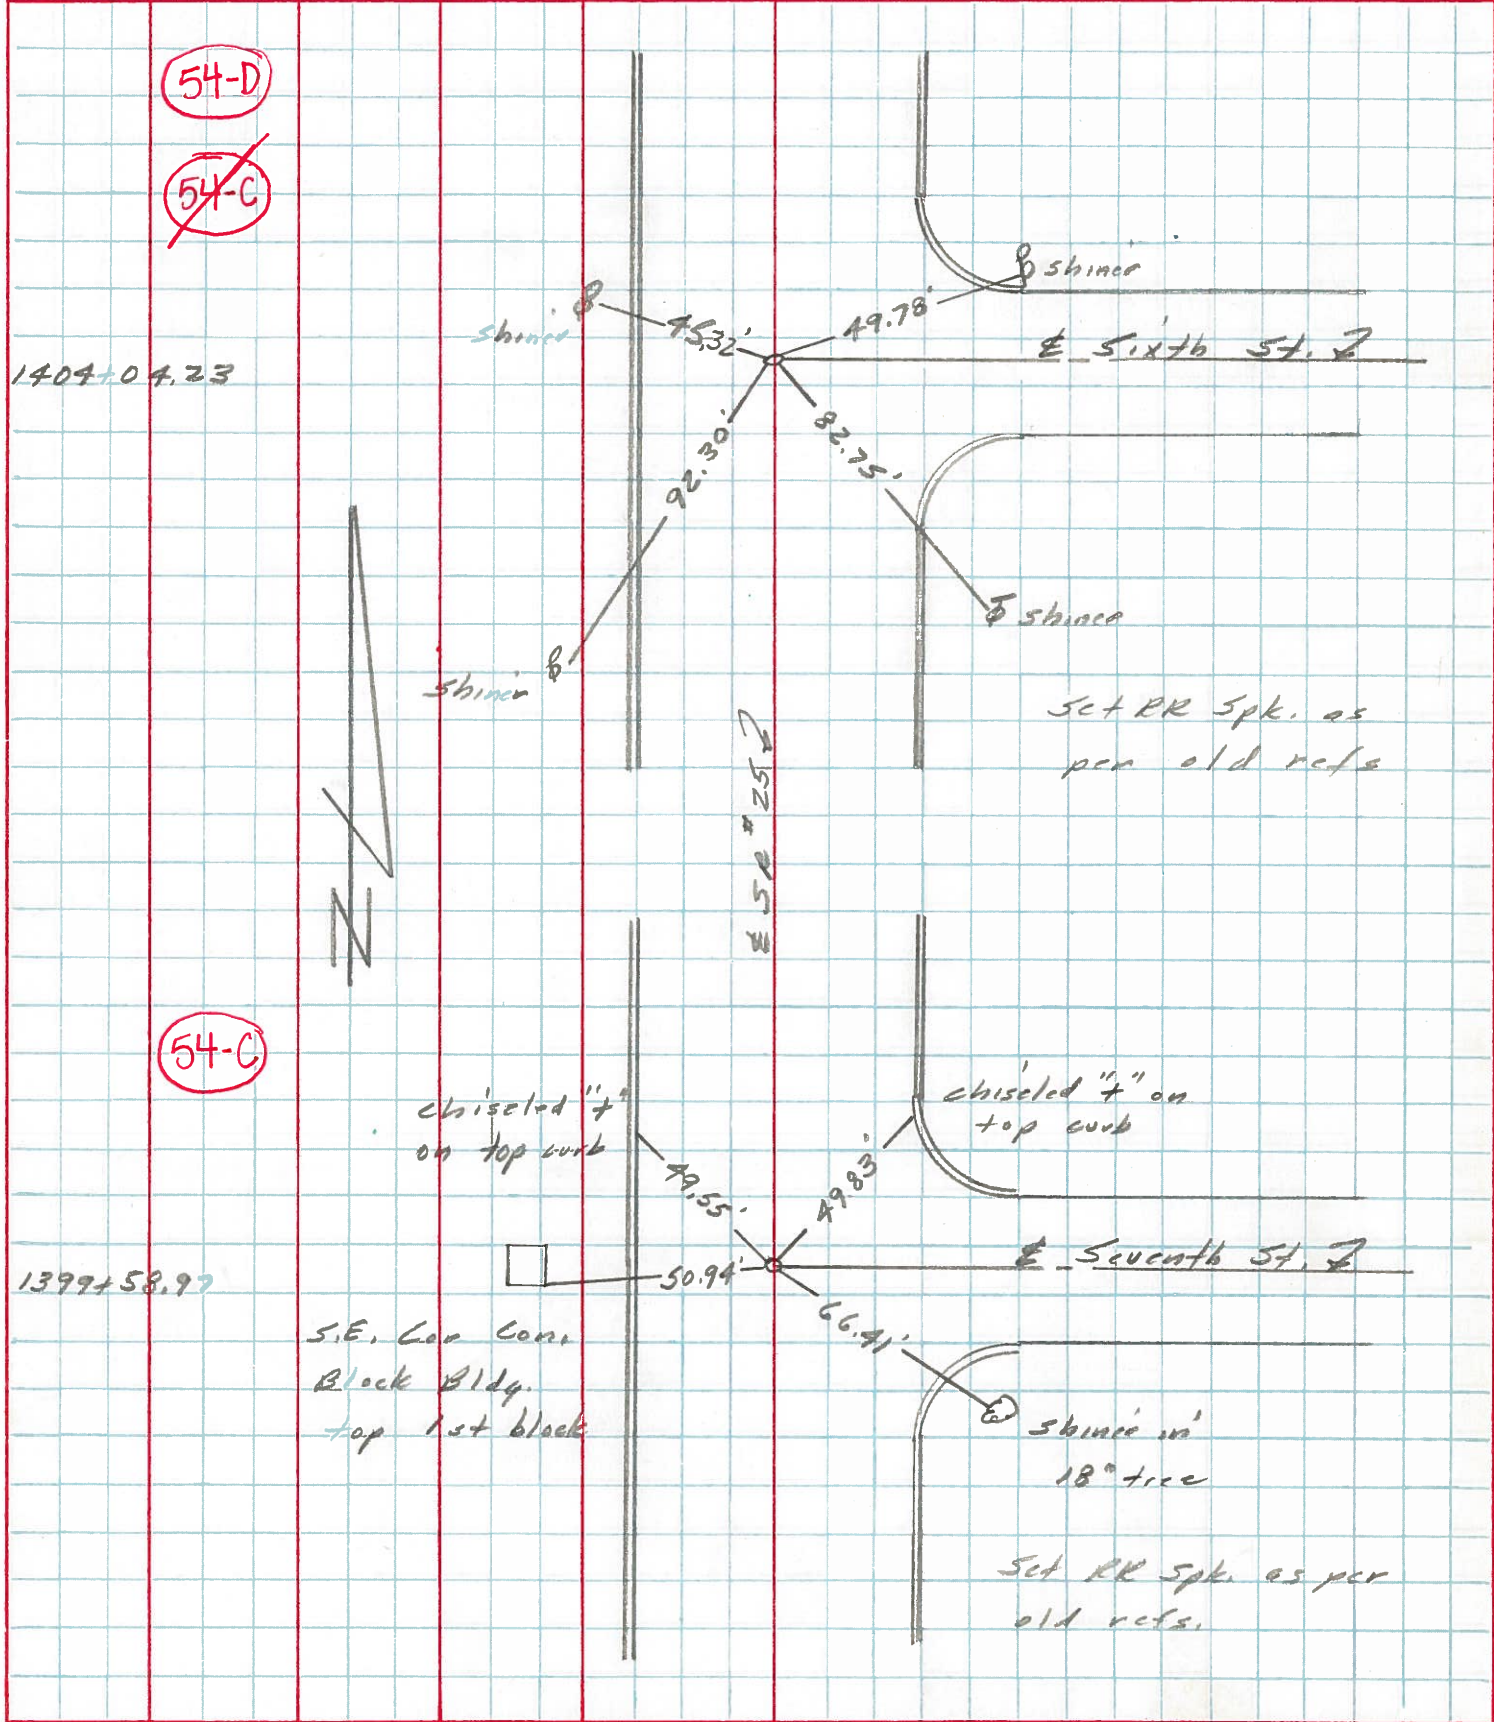 54-D
54-C
shiner
shiner
45.32'
49.78'
℄ Sixth St.
1404+04.23
92.30'
82.75'
shiner
shiner
Set RR Spk. as
per old refs
℄ SR #25
N
54-C
chiseled "+"
on top curb
chiseled "+" on
top curb
49.55'
49.83'
℄ Seventh St.
1399+58.97
50.94'
66.41'
S.E. Cor Con.
Block Bldg.
top 1st block
shiner in
18" tree
Set RR Spk. as per
old refs.